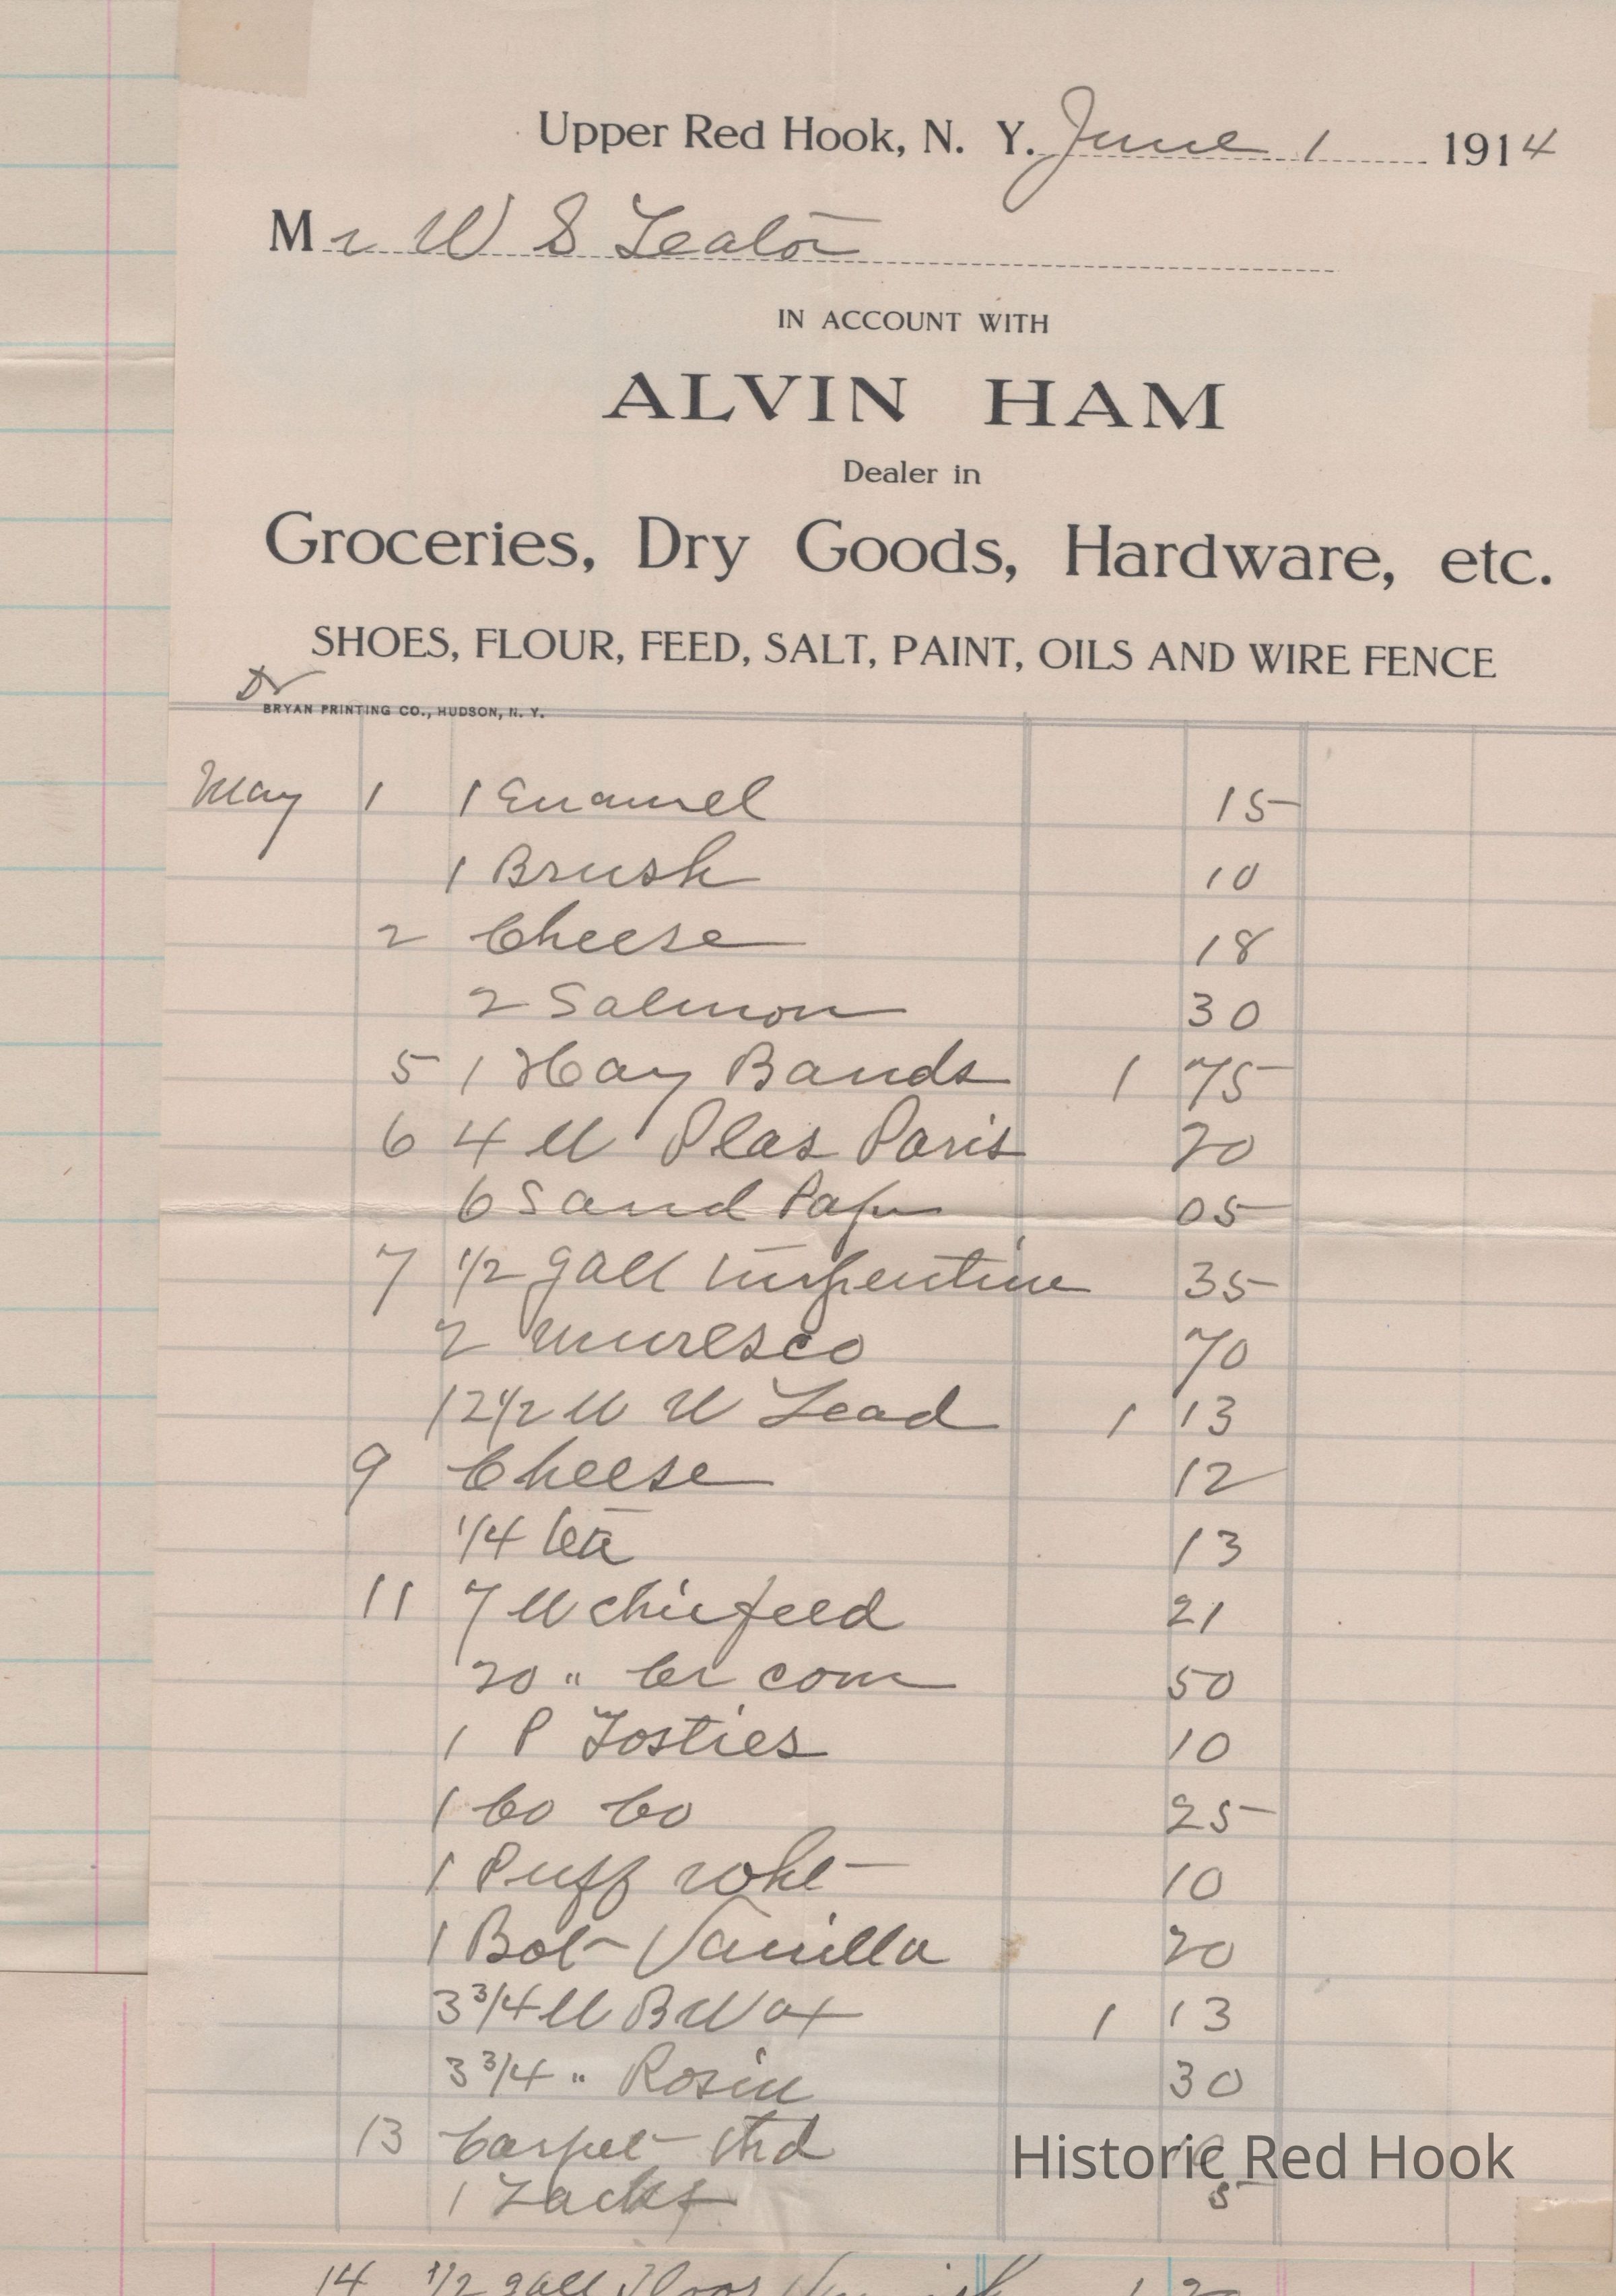 Upper Red Hook, N. Y. June 1 1914
Mr W S Teator
IN ACCOUNT WITH
ALVIN HAM
Dealer in
Groceries, Dry Goods, Hardware, etc.
SHOES, FLOUR, FEED, SALT, PAINT, OILS AND WIRE FENCE
Dr
BRYAN PRINTING CO., HUDSON, N. Y.
May 1 1 Enamel 15
1 Brush 10
2 Cheese 18
2 Salmon 30
5 1 Hay Bands 1 75
6 4 lb Plas Paris 20
6 Sand Pap 05
7 1/2 gall turpentine 35
2 Muresco 70
12 1/2 lb W Lead 1 13
9 Cheese 12
1/4 tea 13
11 7 lb chic feed 21
20 " cr corn 50
1 P Tosties 10
1 Co Co 25
1 Puff wht 10
1 Bot Vanilla 20
3 3/4 lb B Wax 1 13
3 3/4 " Rosin 30
13 Carpet thd
1 Tacks 5
Historic Red Hook
14 1/2 gall Floor Varnish 1 20